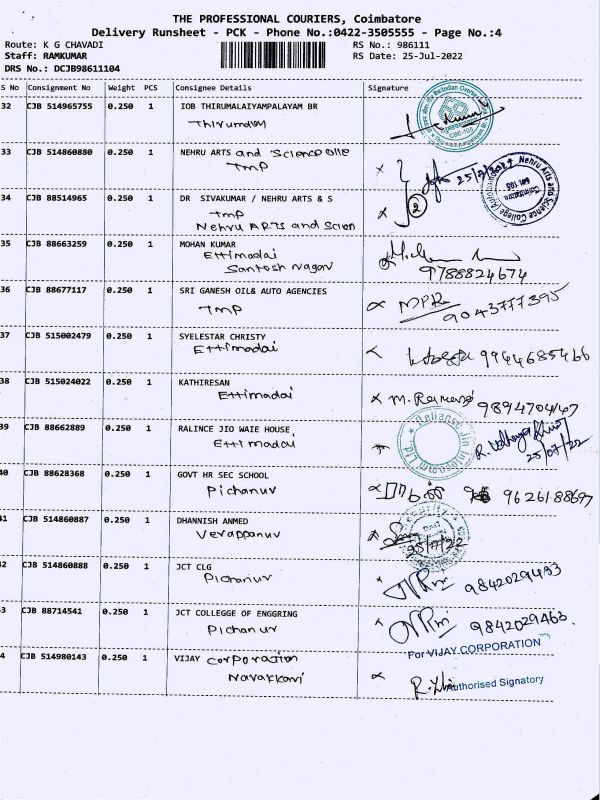 THE PROFESSIONAL COURIERS, Coimbatore
Delivery Runsheet - PCK - Phone No.:0422-3505555 - Page No.:4
Route: K G CHAVADI RS No.: 986111
Staff: RAMKUMAR RS Date: 25-Jul-2022
DRS No.: DCJB98611104
S No Consignment No Weight PCS Consignee Details Signature
32 CJB 514965755 0.250 1 IOB THIRUMALAIYAMPALAYAM BR
33 CJB 514860880 0.250 1 NEHRU ARTS and Science
TMP
25/7/2022
Nehru Arts and Science College
Coimbatore
641 105
34 CJB 88514965 0.250 1 DR SIVAKUMAR / NEHRU ARTS & S
TMP
Nehru ARTS and Scien
2
35 CJB 88663259 0.250 1 MOHAN KUMAR
Ettimadai
Santosh nagar
9788824674
36 CJB 88677117 0.250 1 SRI GANESH OIL& AUTO AGENCIES
TMP
9043777395
37 CJB 515002479 0.250 1 SYELESTAR CHRISTY
Ettimadai
9944685466
38 CJB 515024022 0.250 1 KATHIRESAN
Ettimadai
9894704147
39 CJB 88662889 0.250 1 RALINCE JIO WAIE HOUSE
Ettimadai
Reliance Jio Infocomm Ltd.
25/07/22
40 CJB 88628368 0.250 1 GOVT HR SEC SCHOOL
Pichanur
9626188697
41 CJB 514860887 0.250 1 DHANNISH ANMED
Verappanur
25/7/22
42 CJB 514860888 0.250 1 JCT CLG
Pichanur
9842029433
3 CJB 88714541 0.250 1 JCT COLLEGGE OF ENGGRING
Pichanur
9842029463
4 CJB 514980143 0.250 1 VIJAY Corporation
Navakkarai
For VIJAY CORPORATION
Authorised Signatory